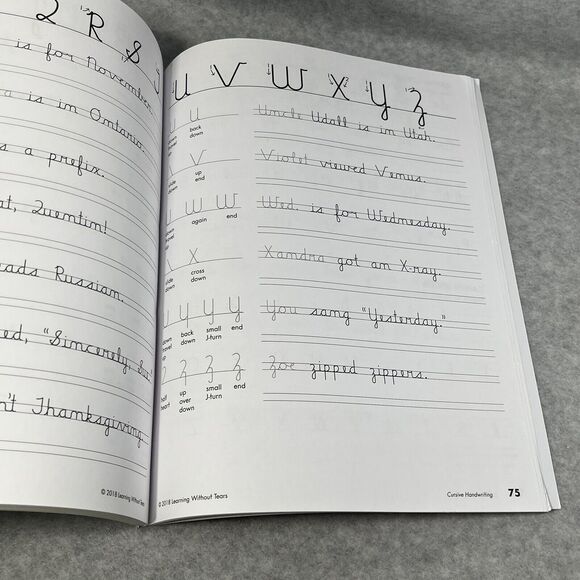 2 R S
is for November
a is in Ontario.
s a prefix.
at, Quentin!
eads Russian.
ed, "Sincerely, Sue"
n't Thanksgiving
© 2018 Learning Without Tears
U V W X Y Z
U
back
down
Uncle Udall is in Utah.
V
up
end
Violet viewed Venus.
U W W
down again end
Wed. is for Wednesday.
X
slide cross
down down
Xandra got an X-ray.
y y y y
down back small end
travel down J-turn
up
You sang "Yesterday."
half up small end
heart over J-turn
down
Zoe zipped zippers.
© 2018 Learning Without Tears
Cursive Handwriting 75